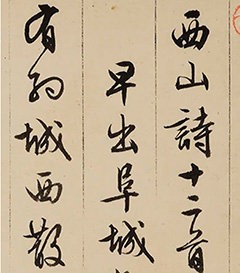 西山詩十二首
早出阜城
有約城西散